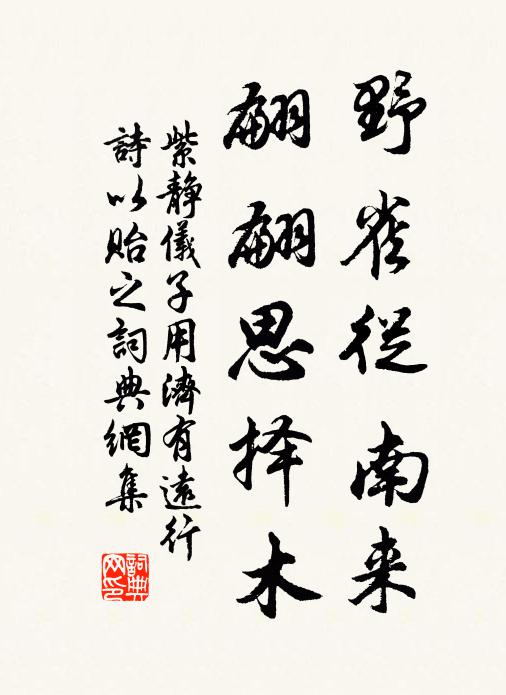 野雀從南来
翩翩思择木
紫静儀子用濟有遠行
詩以貽之詞典網集
詞典网印